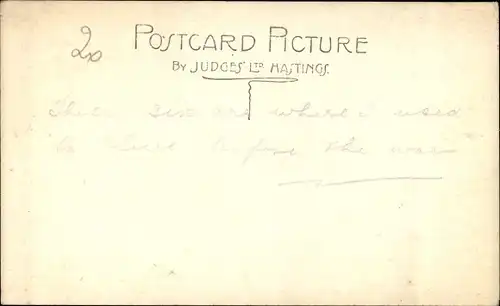 20
POSTCARD PICTURE
BY JUDGES' LTD HASTINGS.
are where I used
to live before the war